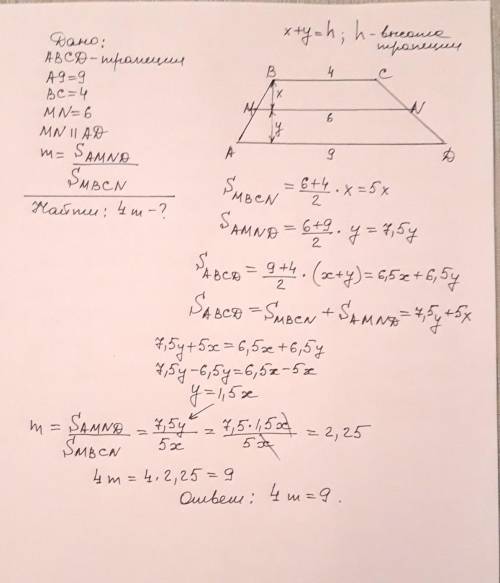 Дано:
ABCD-трапеция
AД=9
BC=4
MN=6
MN || AД
m = S AMNД / S MBCN
Найти: 4m-?
x+y=h; h-высота трапеции
B 4 C
x
M 6 N
y
A 9 D
S MBCN = 6+4 / 2 · x = 5x
S AMNД = 6+9 / 2 · y = 7,5y
S ABCД = 9+4 / 2 · (x+y) = 6,5x+6,5y
S ABCД = S MBCN + S AMNД = 7,5y+5x
7,5y+5x=6,5x+6,5y
7,5y-6,5y=6,5x-5x
y=1,5x
m = S AMNД / S MBCN = 7,5y / 5x = 7,5·1,5x / 5x = 2,25
4m = 4·2,25 = 9
Ответ: 4m=9.